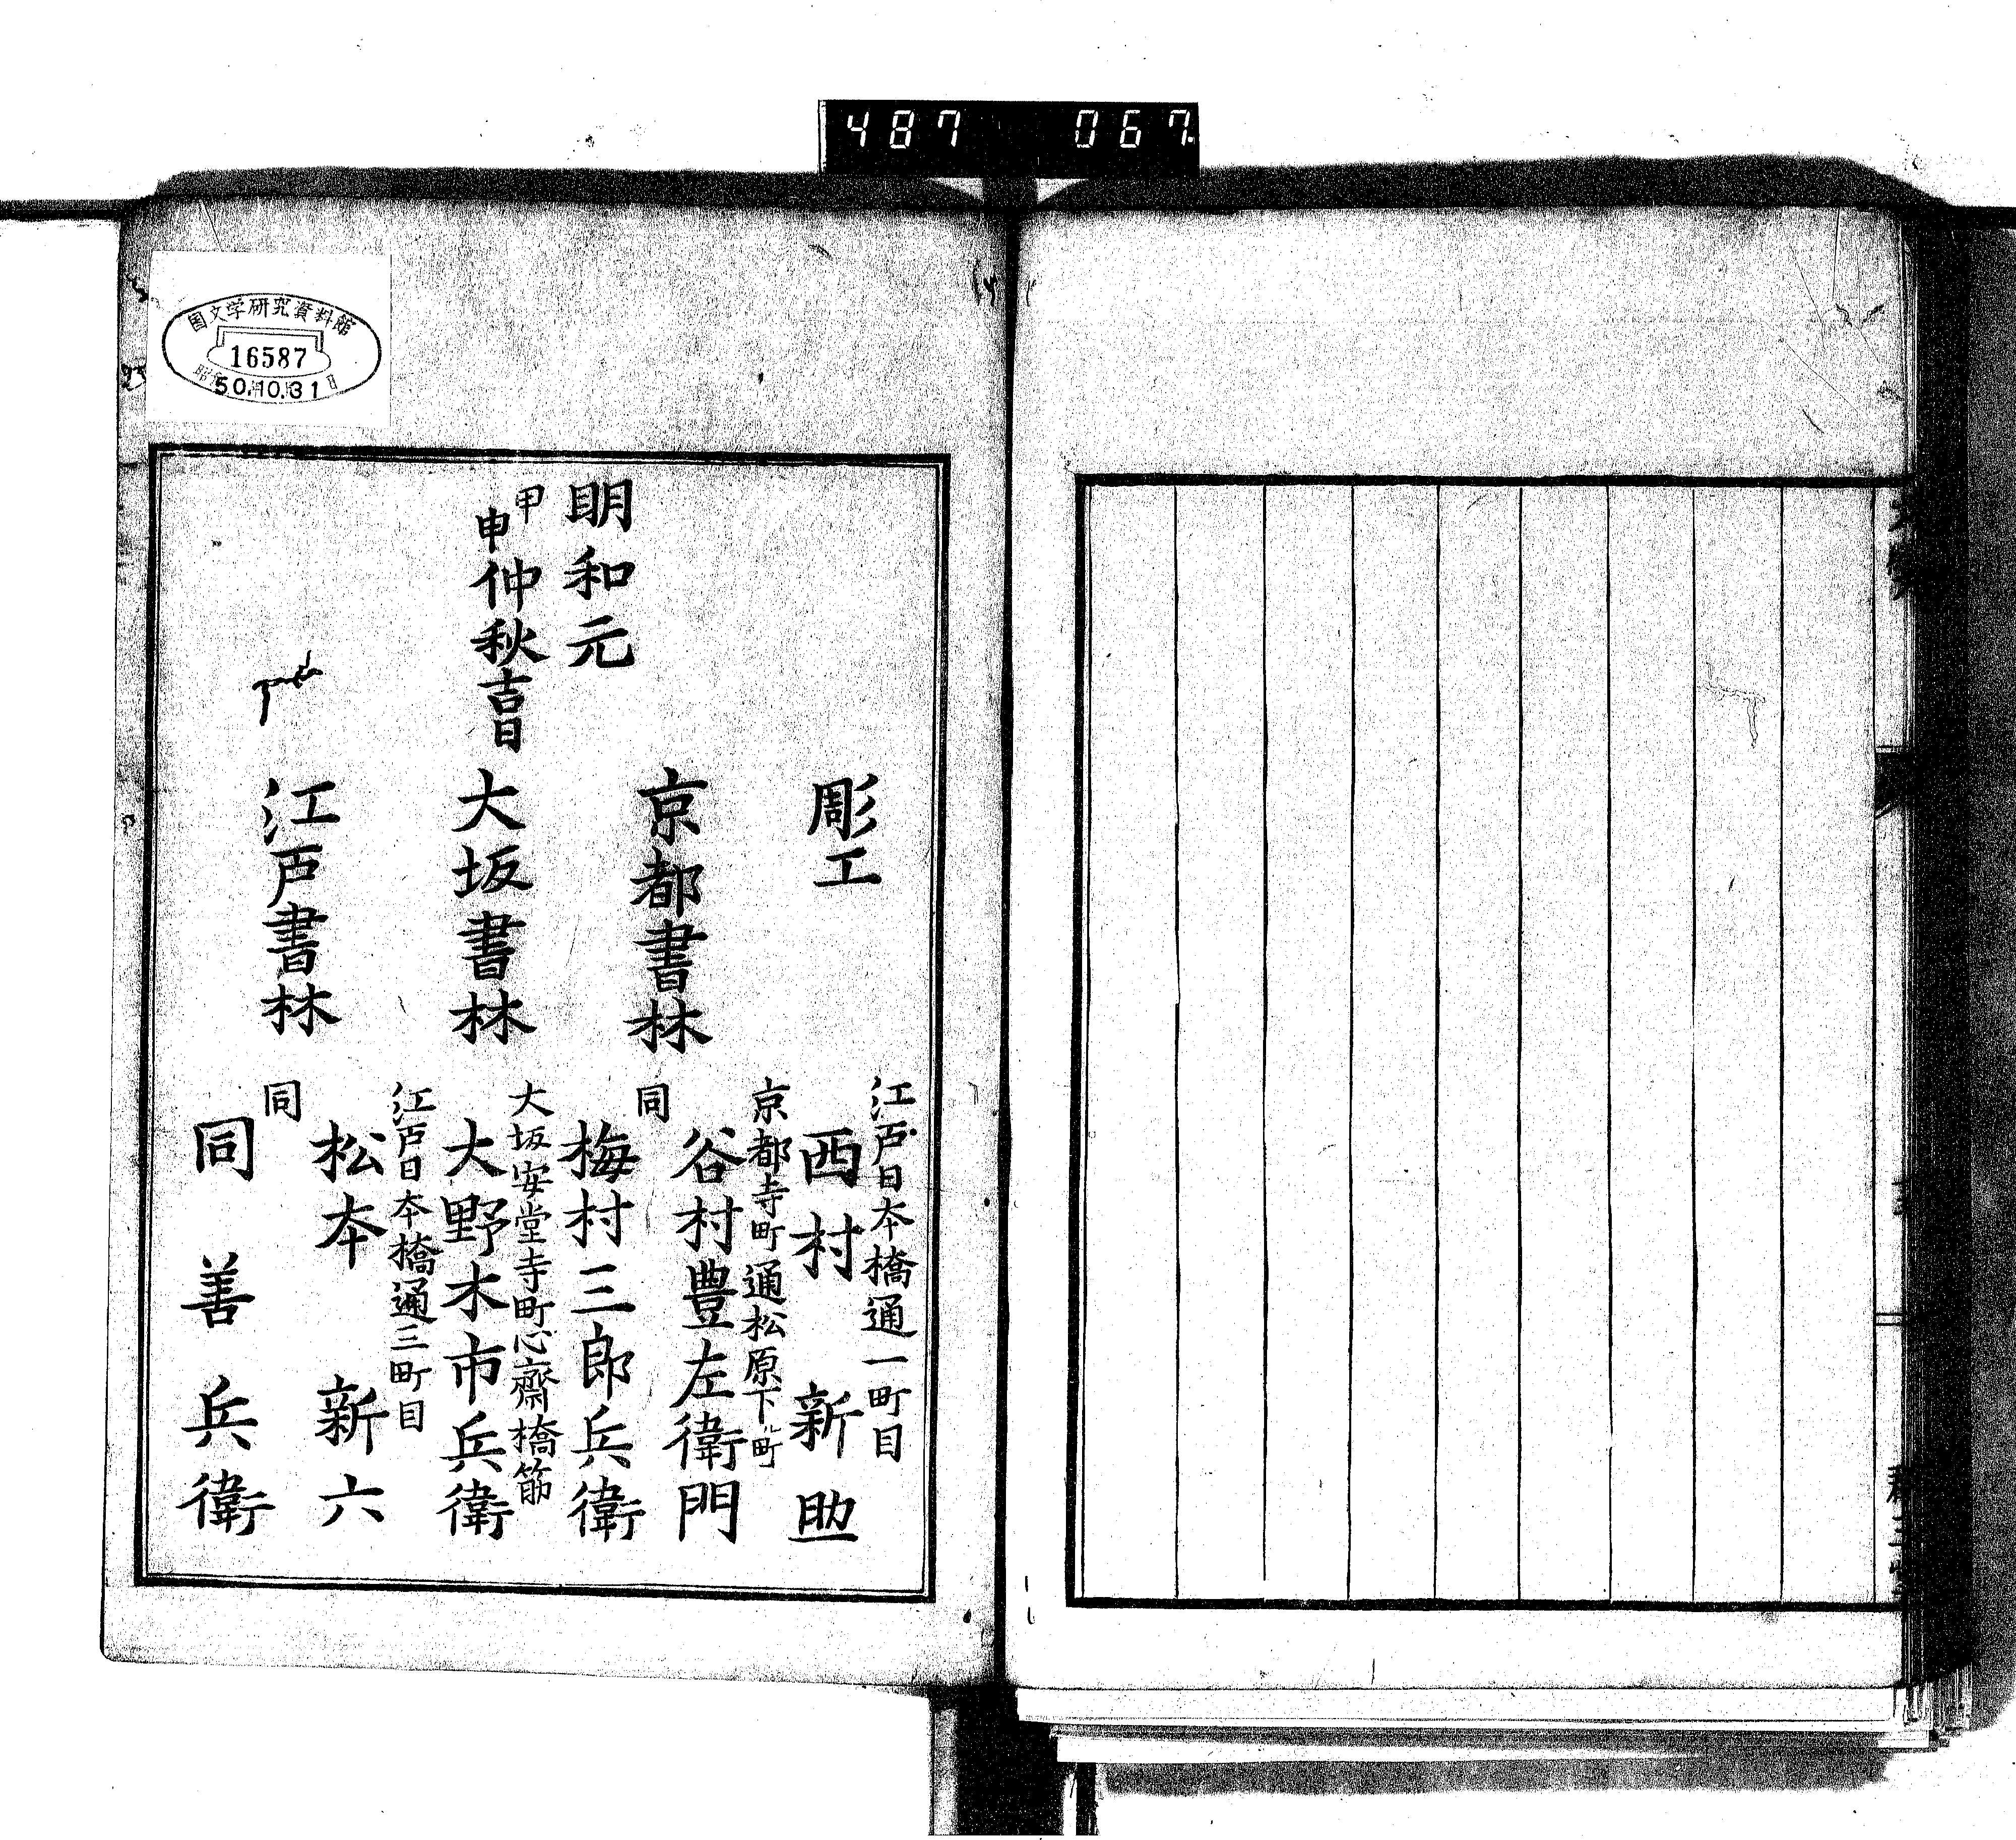 487 067
国文学研究資料館
16587
50.10.31
明和元
甲申仲秋吉日
彫工
江戸日本橋通一町目
西村新助
京都書林
京都寺町通松原下ル町
谷村豊左衛門
同
梅村三郎兵衛
大坂書林
大坂安堂寺町心齋橋筋
大野木市兵衛
江戸書林
江戸日本橋通三町目
松本新六
同
同善兵衛